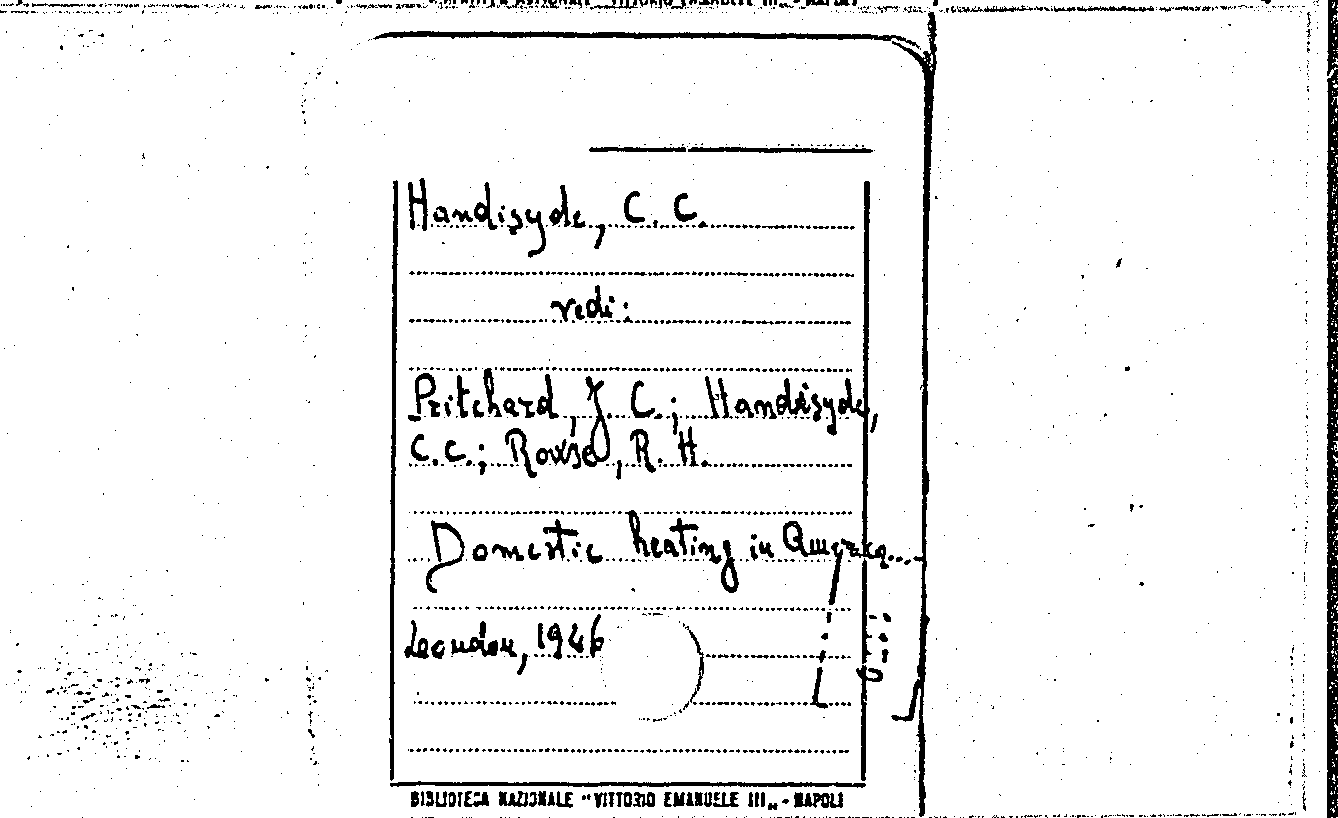 Handisyde, C. C.
vedi:
Pritchard, J. C.; Handisyde,
C.C.; Rowse, R. H.
Domestic heating in America...
London, 1946
BIBLIOTECA NAZIONALE "VITTORIO EMANUELE III" - NAPOLI